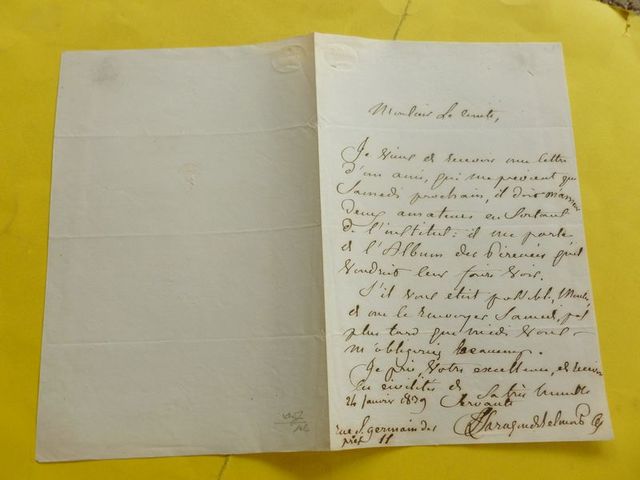 Monsieur Le Comte,
Je viens de recevoir une lettre
d'un ami, qui me previent que
Samedi prochain, il doit
deux amateurs en Sortant
de l'institut: il me parle
de l'Album des Pirenées qu'il
voudroit leur faire voir.
S'il vous etait possible,
de me le renvoyer Samedi, pas
plus tard que midi vous
m'obligeriez beaucoup.
Je prie, Votre excellence, de recevoir
les civilités de Sa très humble
24 Janvier 1839 Servante
rue St germain des
prés 11